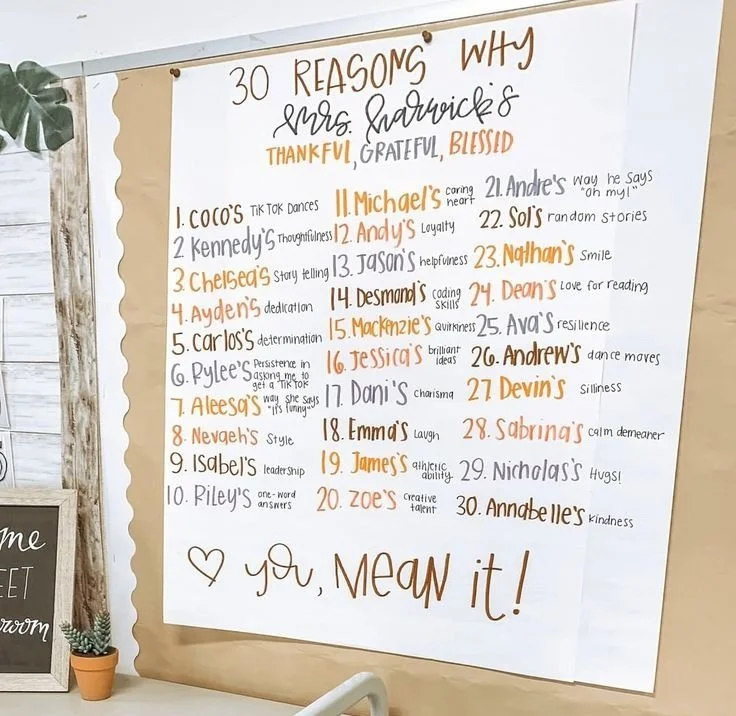 30 REASONS WHY
Mrs. Harwick's
THANKFUL, GRATEFUL, BLESSED
1. COCO'S TIK TOK DANCES
2 Kennedy's Thoughtfulness
3. Chelsea's Story telling
4. Ayden's dedication
5. Carlos's determination
6. Rylee's Persistence in asking me to get a TIK TOK
7. Aleesa's way she says "it's funny"
8. Nevaeh's Style
9. Isabel's leadership
10. Riley's one-word answers
11. Michael's caring heart
12. Andy's Loyalty
13. Jason's helpfulness
14. Desmond's coding skills
15. Mackenzie's quirkiness
16. Jessica's brilliant ideas
17. Dani's charisma
18. Emma's Laugh
19. James's athletic ability
20. Zoe's creative talent
21. Andre's way he says "oh my!"
22. Sol's random stories
23. Nathan's Smile
24. Dean's Love for reading
25. Ava's resilience
26. Andrew's dance moves
27 Devin's Silliness
28. Sabrina's calm demeaner
29. Nicholas's Hugs!
30. Annabelle's kindness
♡ you, MEAN it!
me
EET
room